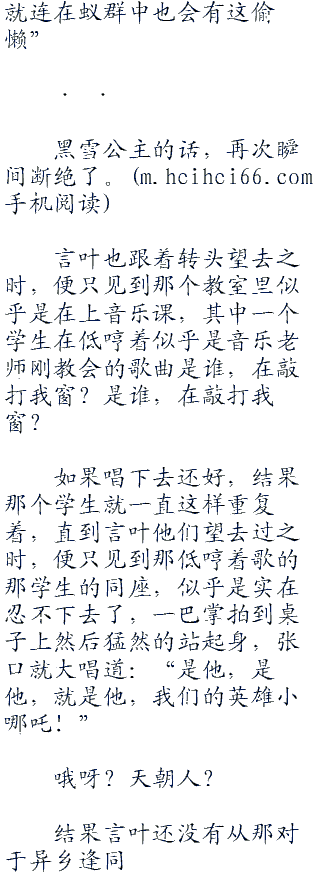 就连在蚁群中也会有这偷
懒”
． ．
黑雪公主的话，再次瞬
间断绝了。(m.hcihci66.com
手机阅读)
言叶也跟着转头望去之
时，便只见到那个教室里似
乎是在上音乐课，其中一个
学生在低哼着似乎是音乐老
师刚教会的歌曲是谁，在敲
打我窗？是谁，在敲打我
窗？
如果唱下去还好，结果
那个学生就一直这样重复
着，直到言叶他们望去过之
时，便只见到那低哼着歌的
那学生的同座，似乎是实在
忍不下去了，一巴掌拍到桌
子上然后猛然的站起身，张
口就大唱道：“是他，是
他，就是他，我们的英雄小
哪吒！”
哦呀？天朝人？
结果言叶还没有从那对
于异乡逢同